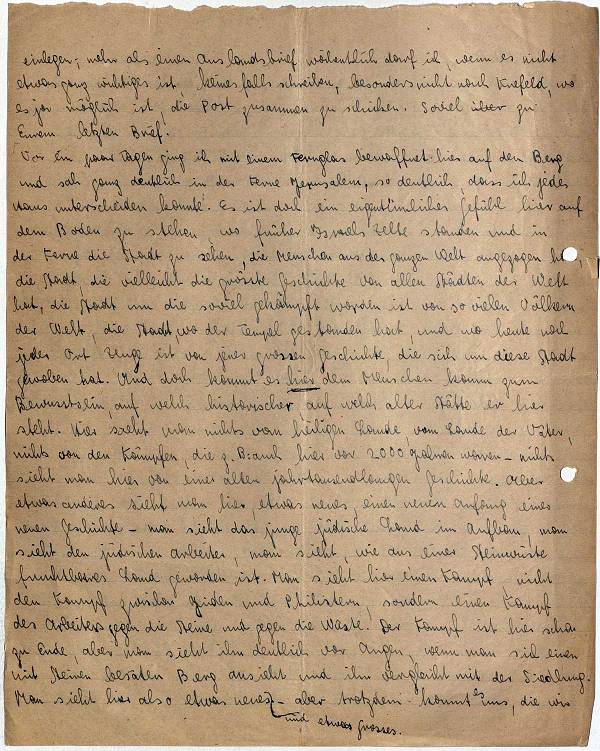 einlegen; mehr als einen Auslandsbrief wöchentlich darf ich, wenn es nicht
etwas ganz wichtiges ist, keinesfalls schreiben, besonders nicht nach Krefeld, wo
es ja möglich ist, die Post zusammen zu schicken. Soviel über zu
Eurem letzten Brief.
Vor ein paar Tagen ging ich mit einem Fernglas bewaffnet hier auf den Berg
und sah ganz deutlich in der Ferne Jerusalem, so deutlich, dass ich jedes
Haus unterscheiden konnte. Es ist doch ein eigentümliches Gefühl hier auf
dem Boden zu stehen, wo früher Israels Zelte standen und in
der Ferne die Stadt zu sehen, die Menschen aus der ganzen Welt angezogen
die Stadt, die vielleicht die grösste Geschichte von allen Städten der Welt
hat, die Stadt um die soviel gekämpft worden ist von so vielen Völkern
der Welt, die Stadt, wo der Tempel gestanden hat, und wo heute noch
jeder Ort Zeuge ist von jener grossen Geschichte, die sich um diese Stadt
gewoben hat. Und doch kommt es hier dem Menschen kaum zum
Bewusstsein, auf welch historischer auf welch alter Stätte er hier
steht. Hier sieht man nichts vom heiligen Lande, vom Lande der Väter,
nichts von den Kämpfen, die z. B. auch hier vor 2000 Jahren waren – nichts
sieht man hier von einer alten jahrtausendlangen Geschichte. Aber
etwas anderes sieht man hier, etwas neues, einen neuen Anfang einer
neuen Geschichte – man sieht das junge jüdische Land im Aufbau, man
sieht den jüdischen Arbeiter, man sieht, wie aus einer Steinwüste
fruchtbares Land geworden ist. Man sieht hier einen Kampf, nicht
den Kampf zwischen Juden und Philistern, sondern einen Kampf
des Arbeiters gegen die Steine und gegen die Wüste. Der Kampf ist hier schon
zu Ende, aber man sieht ihn deutlich vor Augen, wenn man sich einen
mit Steinen besäten Berg ansieht und ihn vergleicht mit der Siedlung.
Man sieht hier also etwas neues und etwas grosses. – aber trotzdem kommt es uns, die wir